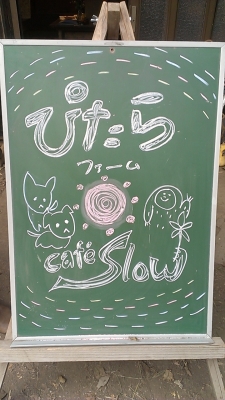 ぴたらら
ファーム
café Slow